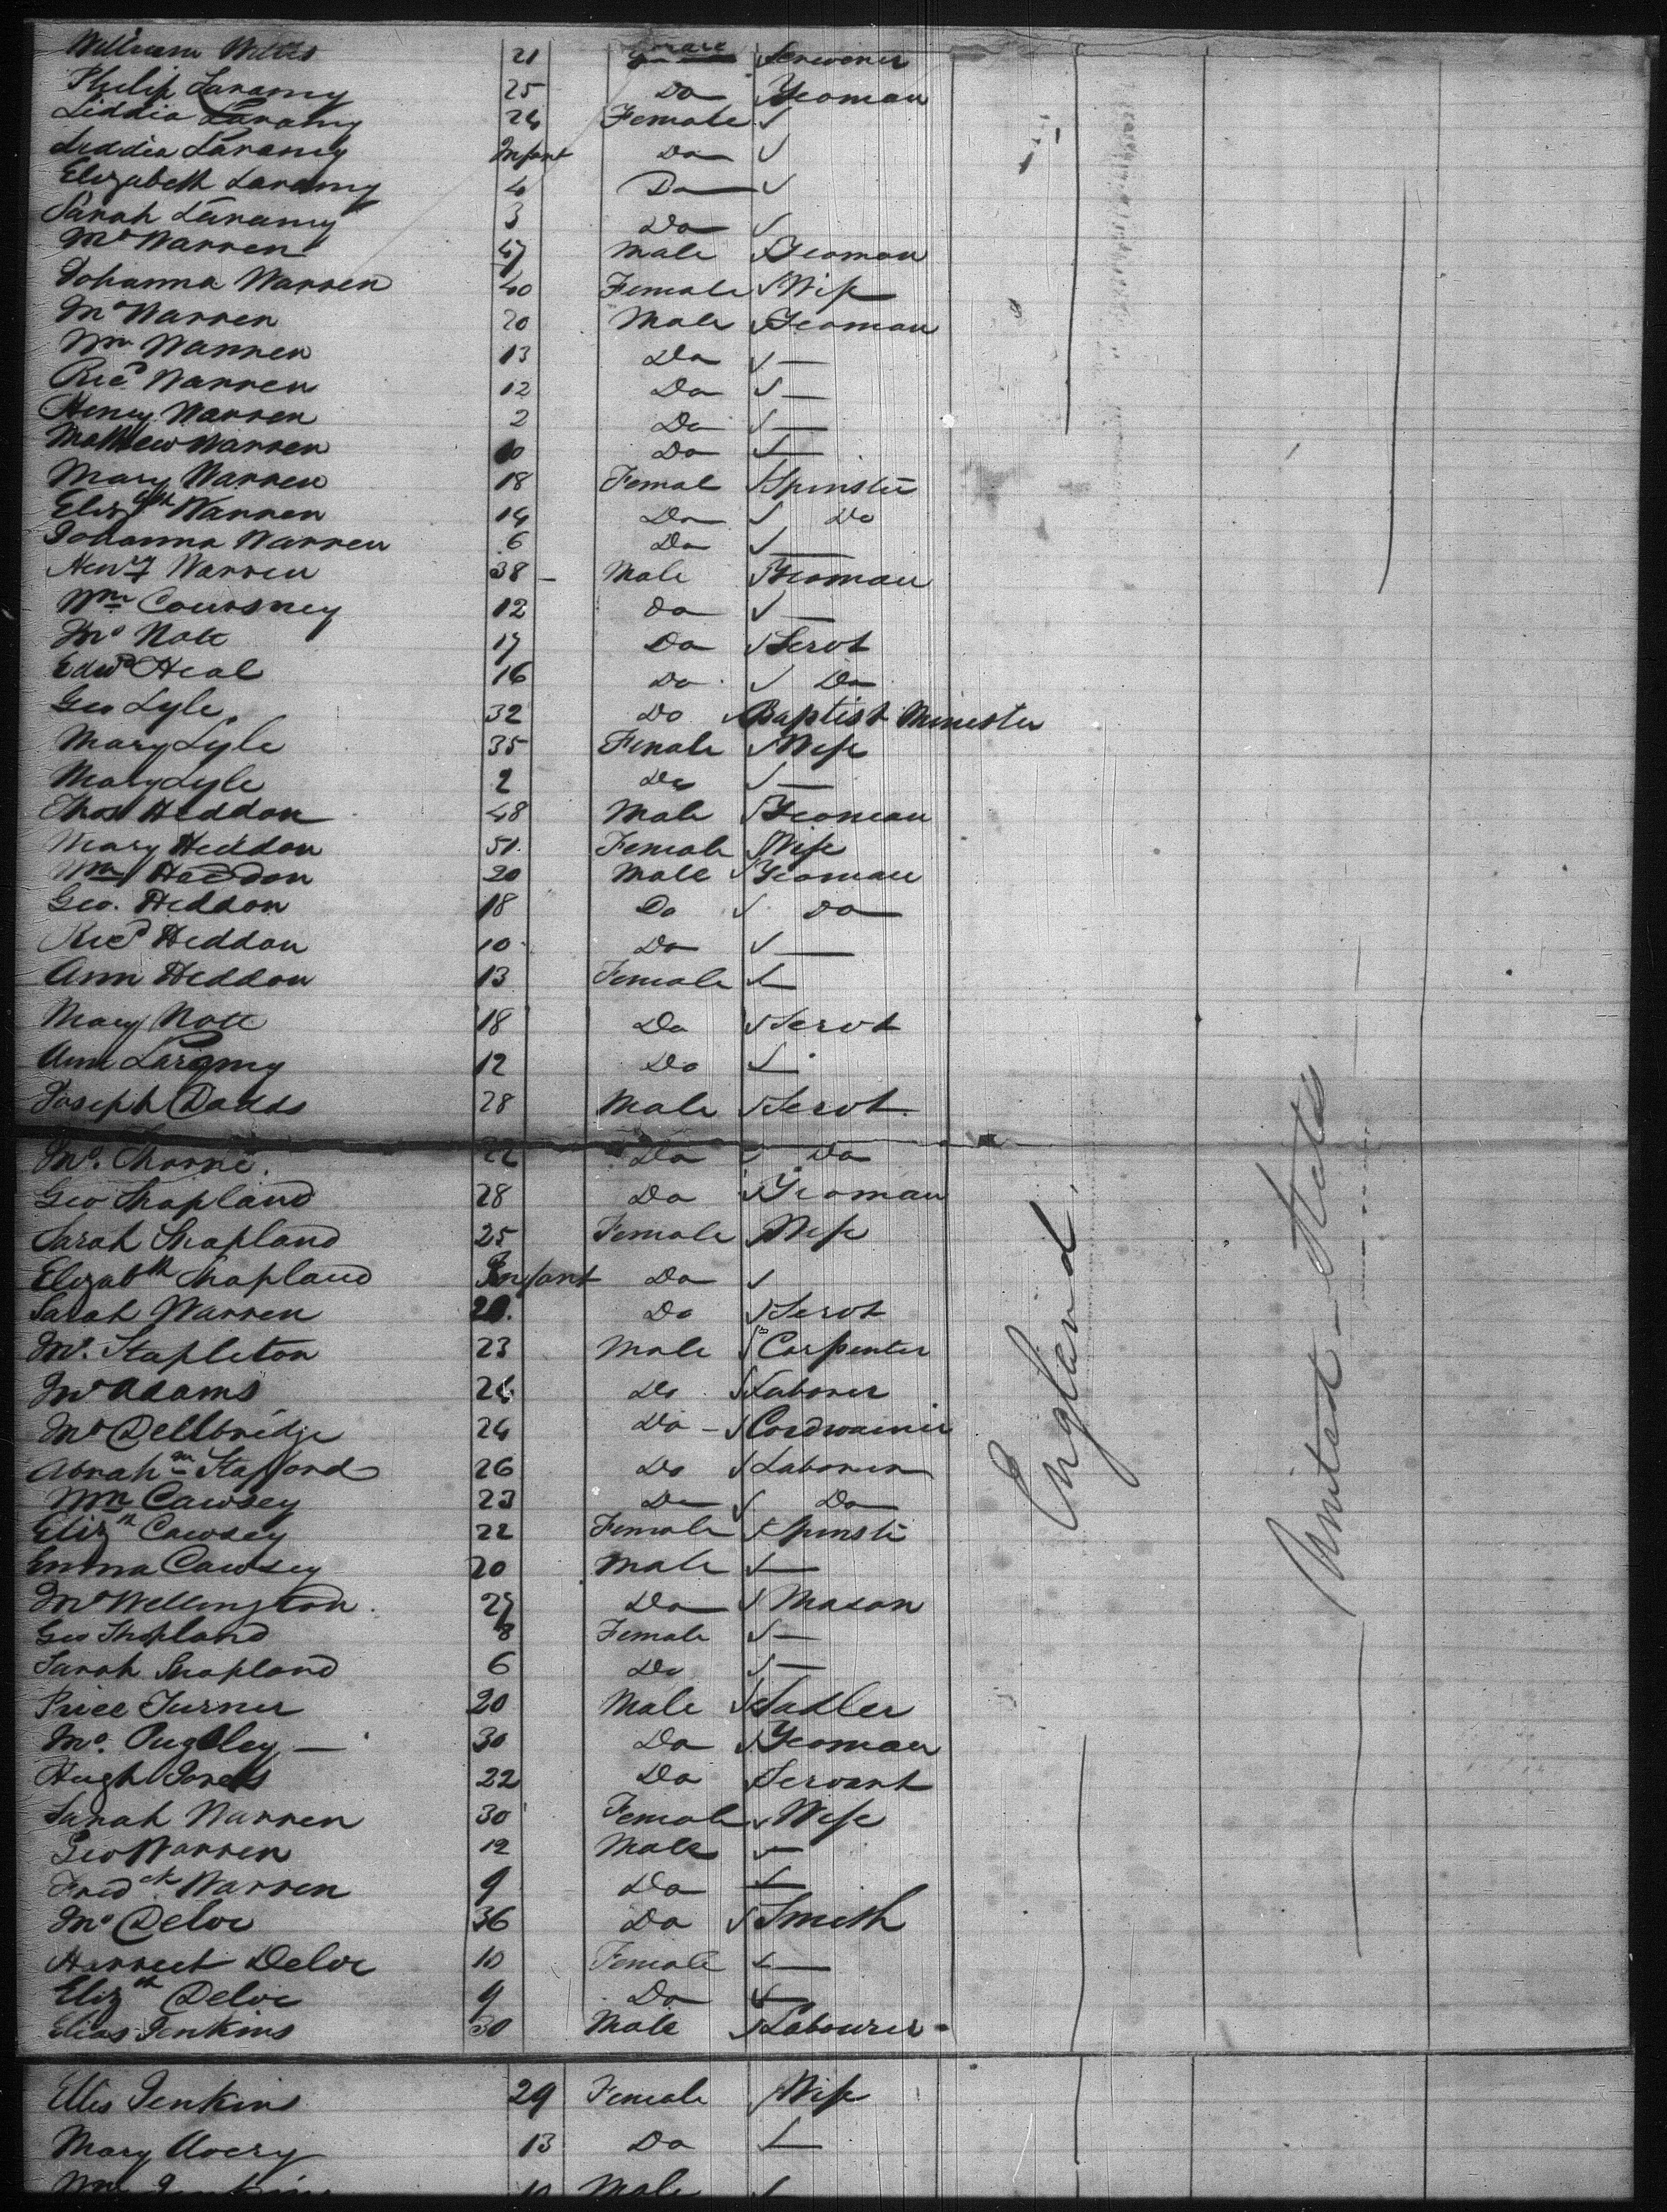 William Wills 21 Male
Philip Laramy 25 Do Yeoman
Liddia Laramy 24 Female ✓
Liddia Laramy Infant Do ✓
Elizabeth Laramy 4 Do ✓
Sarah Laramy 3 Do ✓
Jno Warren 47 Male ✓ Yeoman
Johanna Warren 40 Female ✓ Wife
Jno Warren 20 Male ✓ Yeoman
Wm Warren 13 Do ✓ —
Ricd Warren 12 Do ✓ —
Henry Warren 2 Do ✓ —
Mathew Warren 10 Do ✓ —
Mary Warren 18 Femal ✓ Spinstr
Elizabth Warren 14 Do ✓ Do
Johanna Warren 6 Do ✓ —
Henry Warren 38 — Male ✓ Yeoman
Wm Coursney 12 Do ✓ —
Jno Nott 17 Do ✓ Servt
Edwd Heal 16 Do ✓ Do
Geo Lyle 32 Do ✓ Baptist Minister
Mary Lyle 35 Female ✓ Wife
Mary Lyle 2 Do ✓ —
Thos Heddon 48 Male ✓ Yeoman
Mary Heddon 51 Female ✓ Wife
Wm Heddon 20 Male ✓ Yeoman
Geo. Heddon 18 Do ✓ Do
Ricd Heddon 10 Do ✓ —
Ann Heddon 13 Female ✓ —
Mary Nott 18 Do ✓ Servt
Ann Laramy 12 Do ✓ —
Joseph Dadds 28 Male ✓ Servt
Jno. Thorne. 22 Do ✓ Do
Geo Shapland 28 Do ✓ Yeoman
Sarah Shapland 25 Female ✓ Wife
Elizabth Shapland Infant Do ✓
Sarah Warren 20. Do ✓ Servt
Jno. Stapleton 23 Male ✓ Carpenter
Jno Adams 24 Do ✓ Laborer
Jno Dellbridge 24 Do — ✓ Cordwainer
Abrahm Stafford 26 Do ✓ Laborer
Wm Cawsey 23 Do ✓ Do
Elizh Cawsey 22 Female ✓ Spinstr
Emma Cawsey 20 Male ✓ —
Jno Wellington. 27 Do ✓ Mason
Geo Shapland 8 Female ✓ —
Sarah Shapland 6 Do ✓ —
Price Turner 20 Male ✓ Sadler
Jno. Pugsley — 30 Do ✓ Yeoman
Hugh Jones 22 Do ✓ Servant
Sarah Warren 30 Female ✓ Wife
Geo Warren 12 Male ✓ —
Fredck Warren 9 Do ✓ —
Jno Delve 36 Do ✓ Smith
Harriet Delve 10 Female ✓ —
Elizth Delve 9 Do ✓ —
Elias Jenkins 30 Male ✓ Labourer
Ellis Jenkins 29 Female ✓ Wife
Mary Avery 13 Do ✓ —
Wm Jenkins 10 Male ✓
England
United States